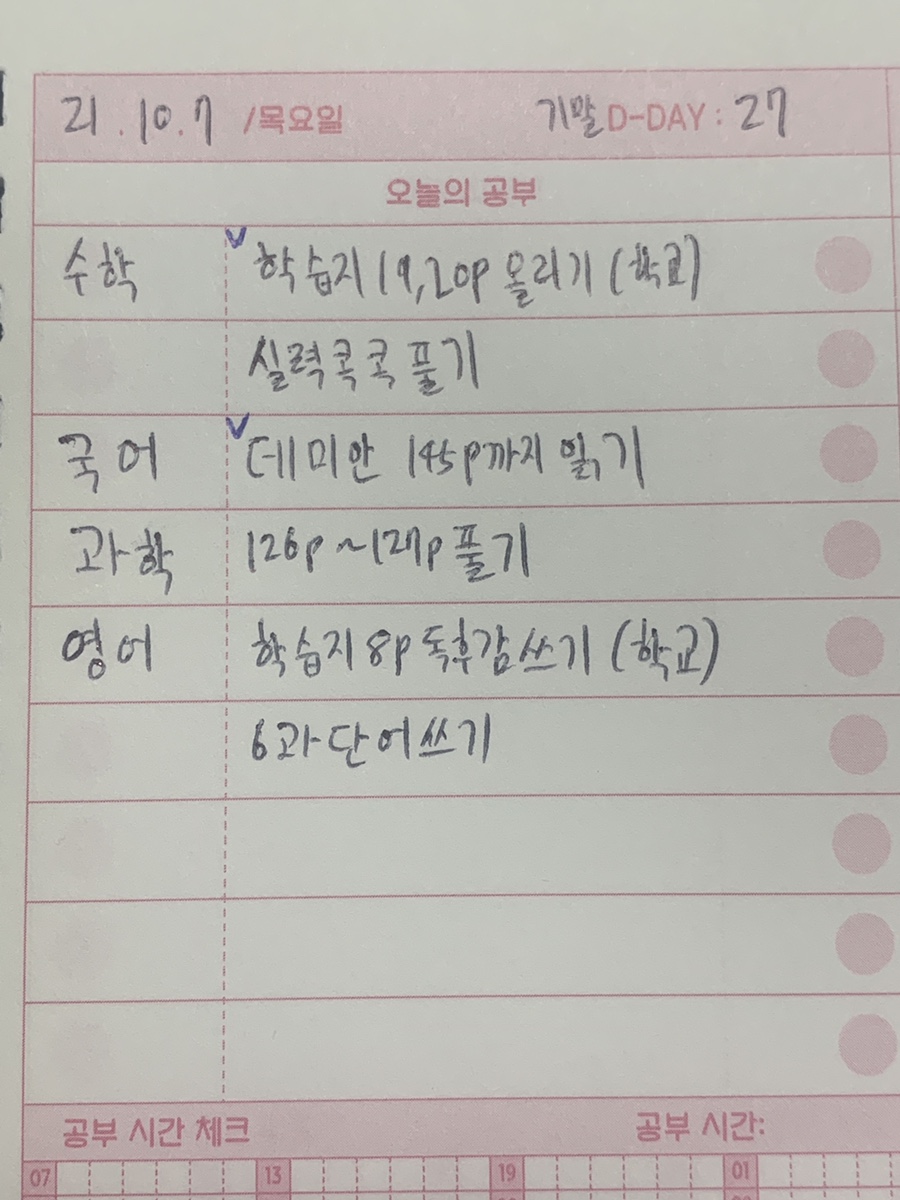 21.10.7 /목요일 기말 D-DAY : 27
오늘의 공부
수학 ✓ 학습지 19,20p 올리기 (학교)
실력콕콕 풀기
국어 ✓ 데미안 145p까지 읽기
과학 126p~127p 풀기
영어 학습지 8p 독후감쓰기 (학교)
6과 단어쓰기
공부 시간 체크 공부 시간:
07 13 19 01